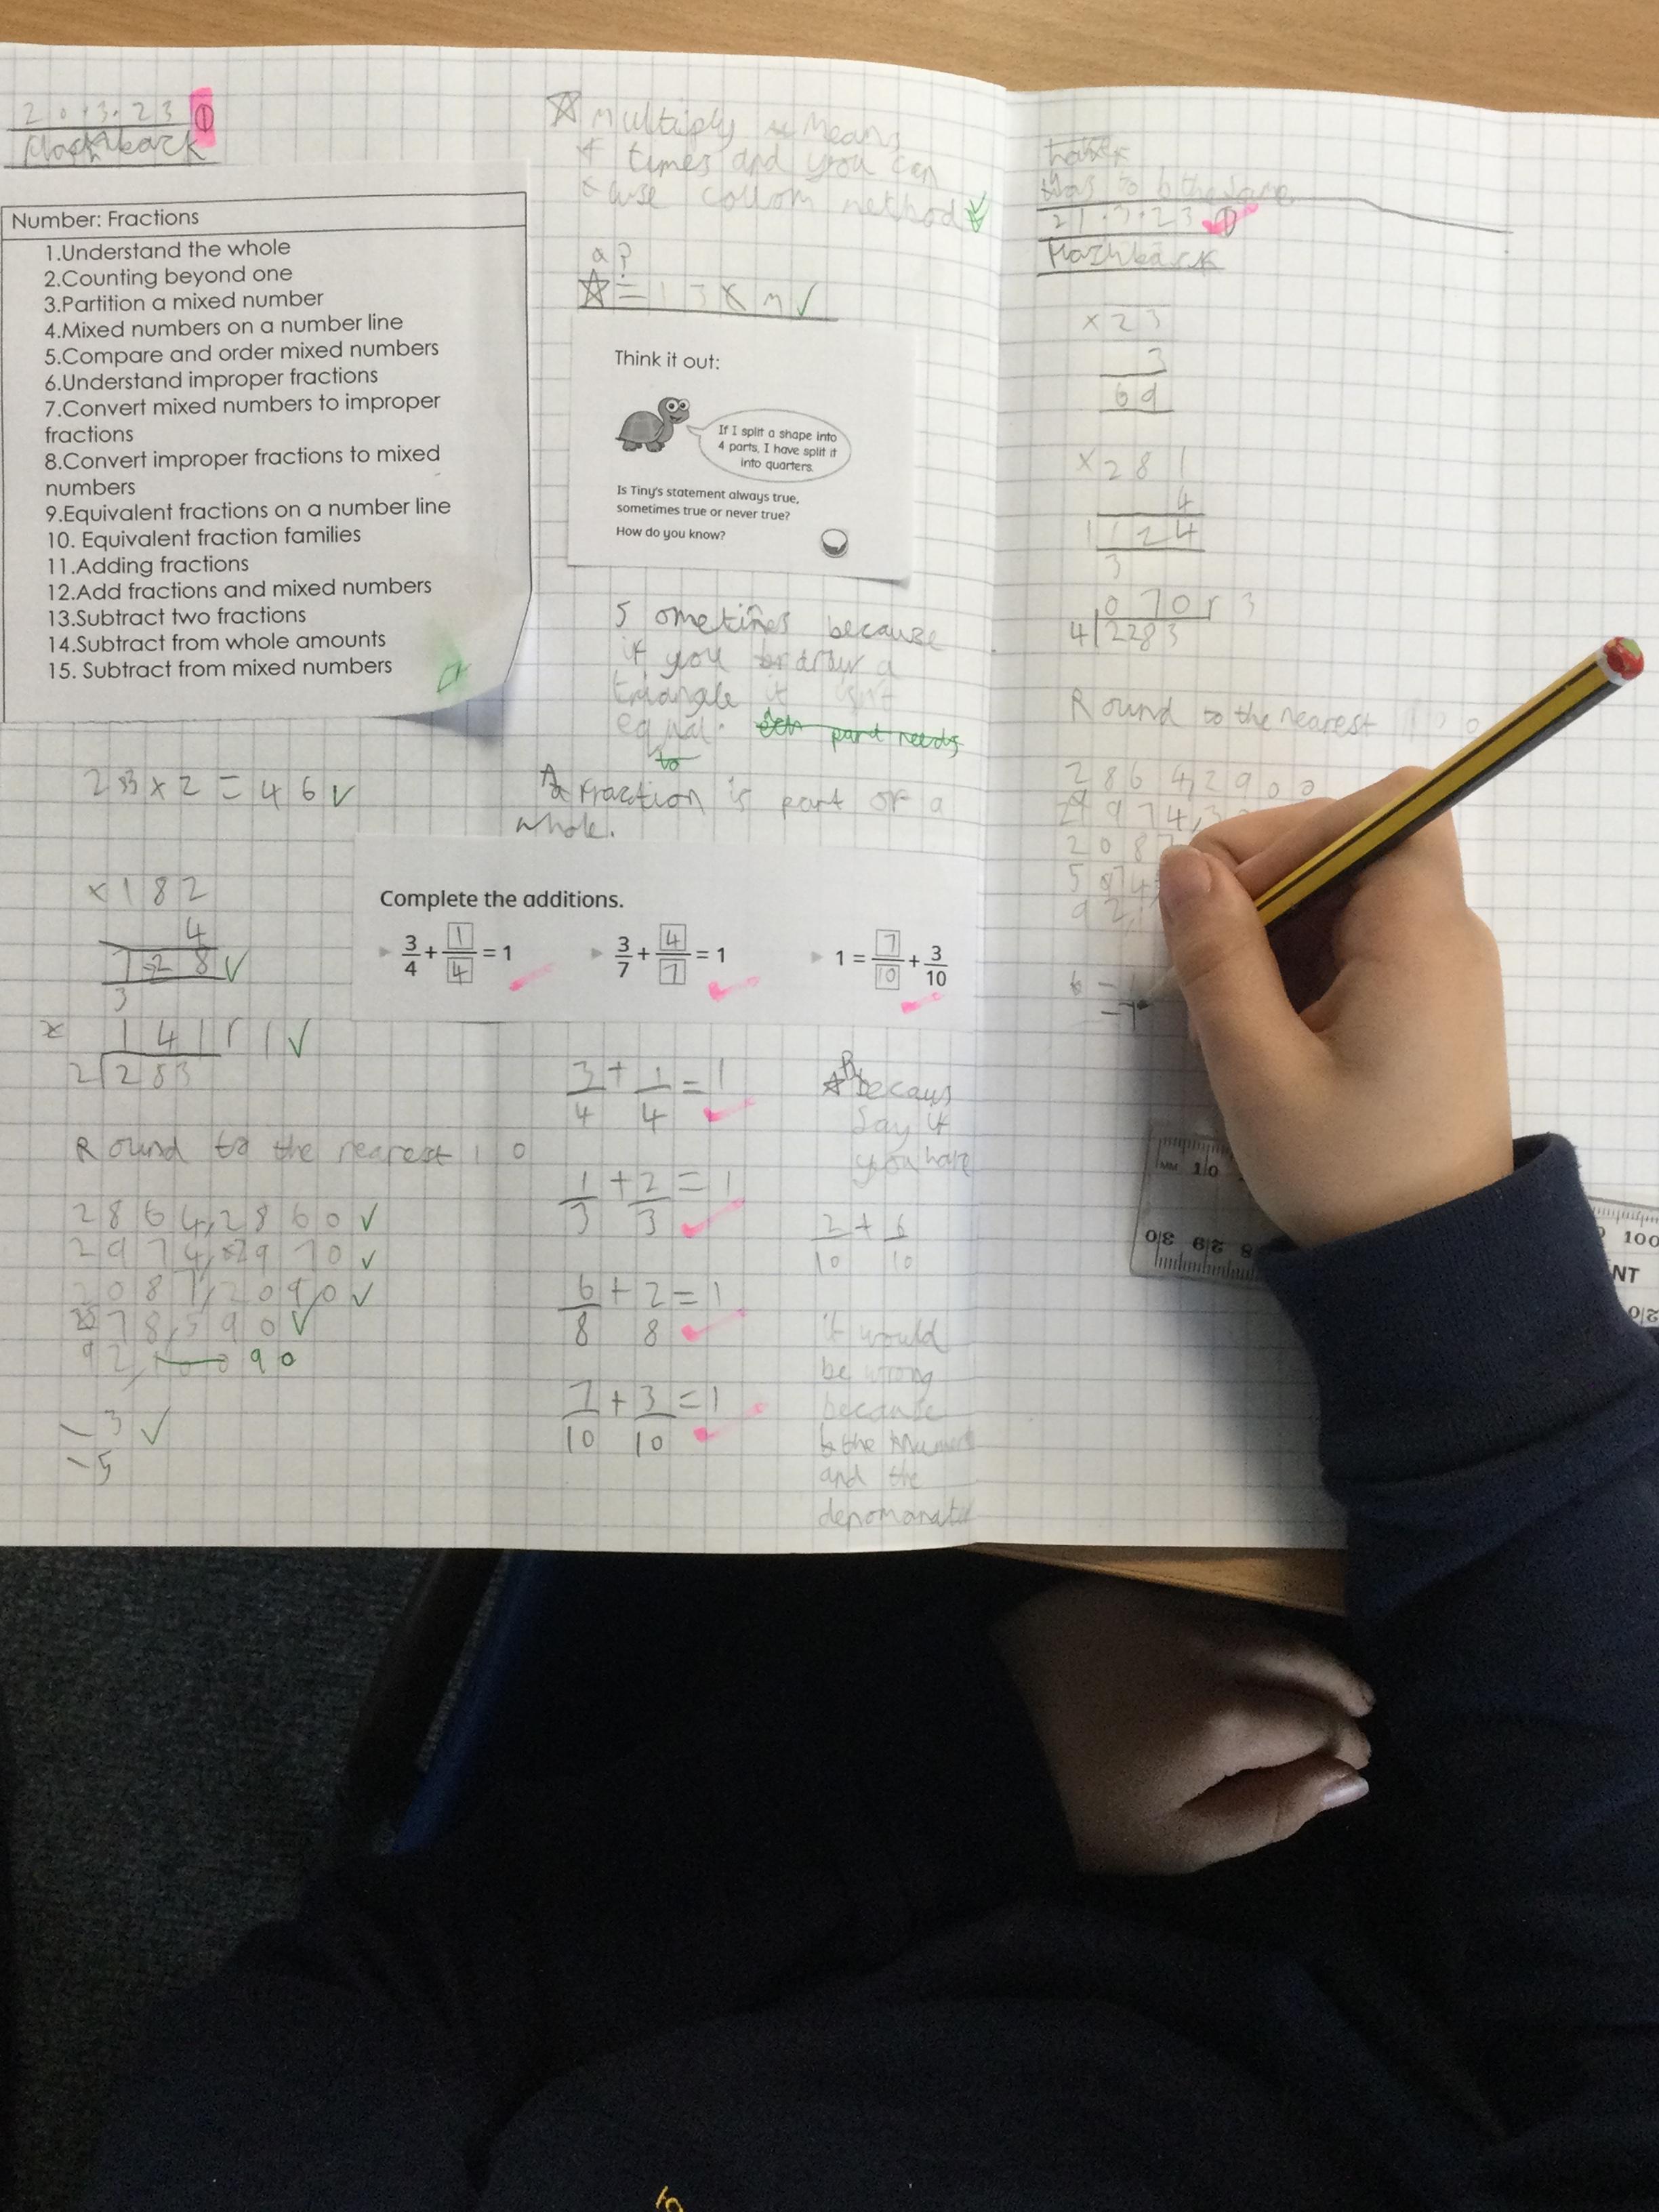 20.3.23 1
Flashback
Number: Fractions
1.Understand the whole
2.Counting beyond one
3.Partition a mixed number
4.Mixed numbers on a number line
5.Compare and order mixed numbers
6.Understand improper fractions
7.Convert mixed numbers to improper
fractions
8.Convert improper fractions to mixed
numbers
9.Equivalent fractions on a number line
10. Equivalent fraction families
11.Adding fractions
12.Add fractions and mixed numbers
13.Subtract two fractions
14.Subtract from whole amounts
15. Subtract from mixed numbers
23 x 2 = 46 ✓
x 182
4
728 ✓
3
141 r 1 ✓
2 283
Round to the nearest 10
2864, 2860 ✓
2974, 2970 ✓
2087, 2090 ✓
578, 590 ✓
92, 90
-3 ✓
-5
multiply means
times and you can
use collom method
a ?
= 13 x m ✓
Think it out:
If I split a shape into
4 parts, I have split it
into quarters.
Is Tiny's statement always true,
sometimes true or never true?
How do you know?
Sometimes because
if you draw a
triangle it isn't
equal. part needs
to
A Fraction is part of a
whole.
Complete the additions.
3/4 + 1/4 = 1
3/7 + 4/7 = 1
1 = 7/10 + 3/10
3/4 + 1/4 = 1
1/3 + 2/3 = 1
6/8 + 2/8 = 1
7/10 + 3/10 = 1
Becaus
say if
you have
2/10 + 6/10
it would
be wrong
because
the
and the
denomanator
has to b the same
21.3.23 1
Flashback
x 23
3
69
x 281
4
1124
3
070 r 3
4 2283
Round to the nearest 100
2864, 2900
2974, 3
208
5
92,
6 -
MM 10
30 29
100